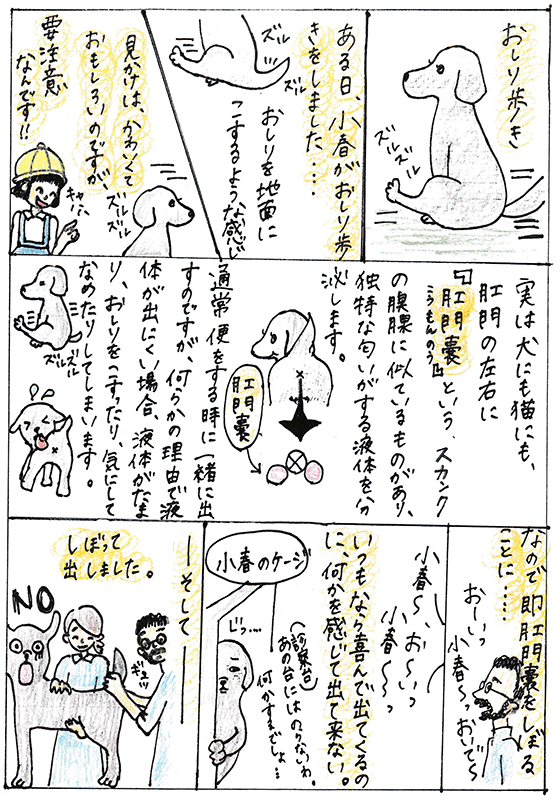 おしり歩き
ズル
ズル
ある日、小春がおしり歩
きをしました…
おしりを地面に
こするような感じ
ズル
ズル
見かけは、かわいくて
おもしろいのですが、
要注意
なんです!!
ズル
ズル
キャハハ
実は犬にも猫にも、
肛門の左右に
『肛門嚢』という、スカンク
こうもんのう
の腹腺に似ているものがあり、
独特な匂いがする液体を分
泌します。
肛門嚢
通常便をする時に一緒に出
すのですが、何らかの理由で液
体が出にくい場合、液体がたま
り、おしりをこすったり、気にして
なめたりしてしまいます。
ズル
ズル
なので即肛門嚢をしぼる
ことに……
おーいっ
小春〜っおいで〜
小春〜、お〜いっ
小春〜っ
いつもなら喜んで出てくるの
に、何かを感じて出て来ない。
小春のケージ
じっ…
(診察台)
あの台にはのらないわ。
何かするでしょ…
―そして―
しぼって
出しました。
NO
ギュッ